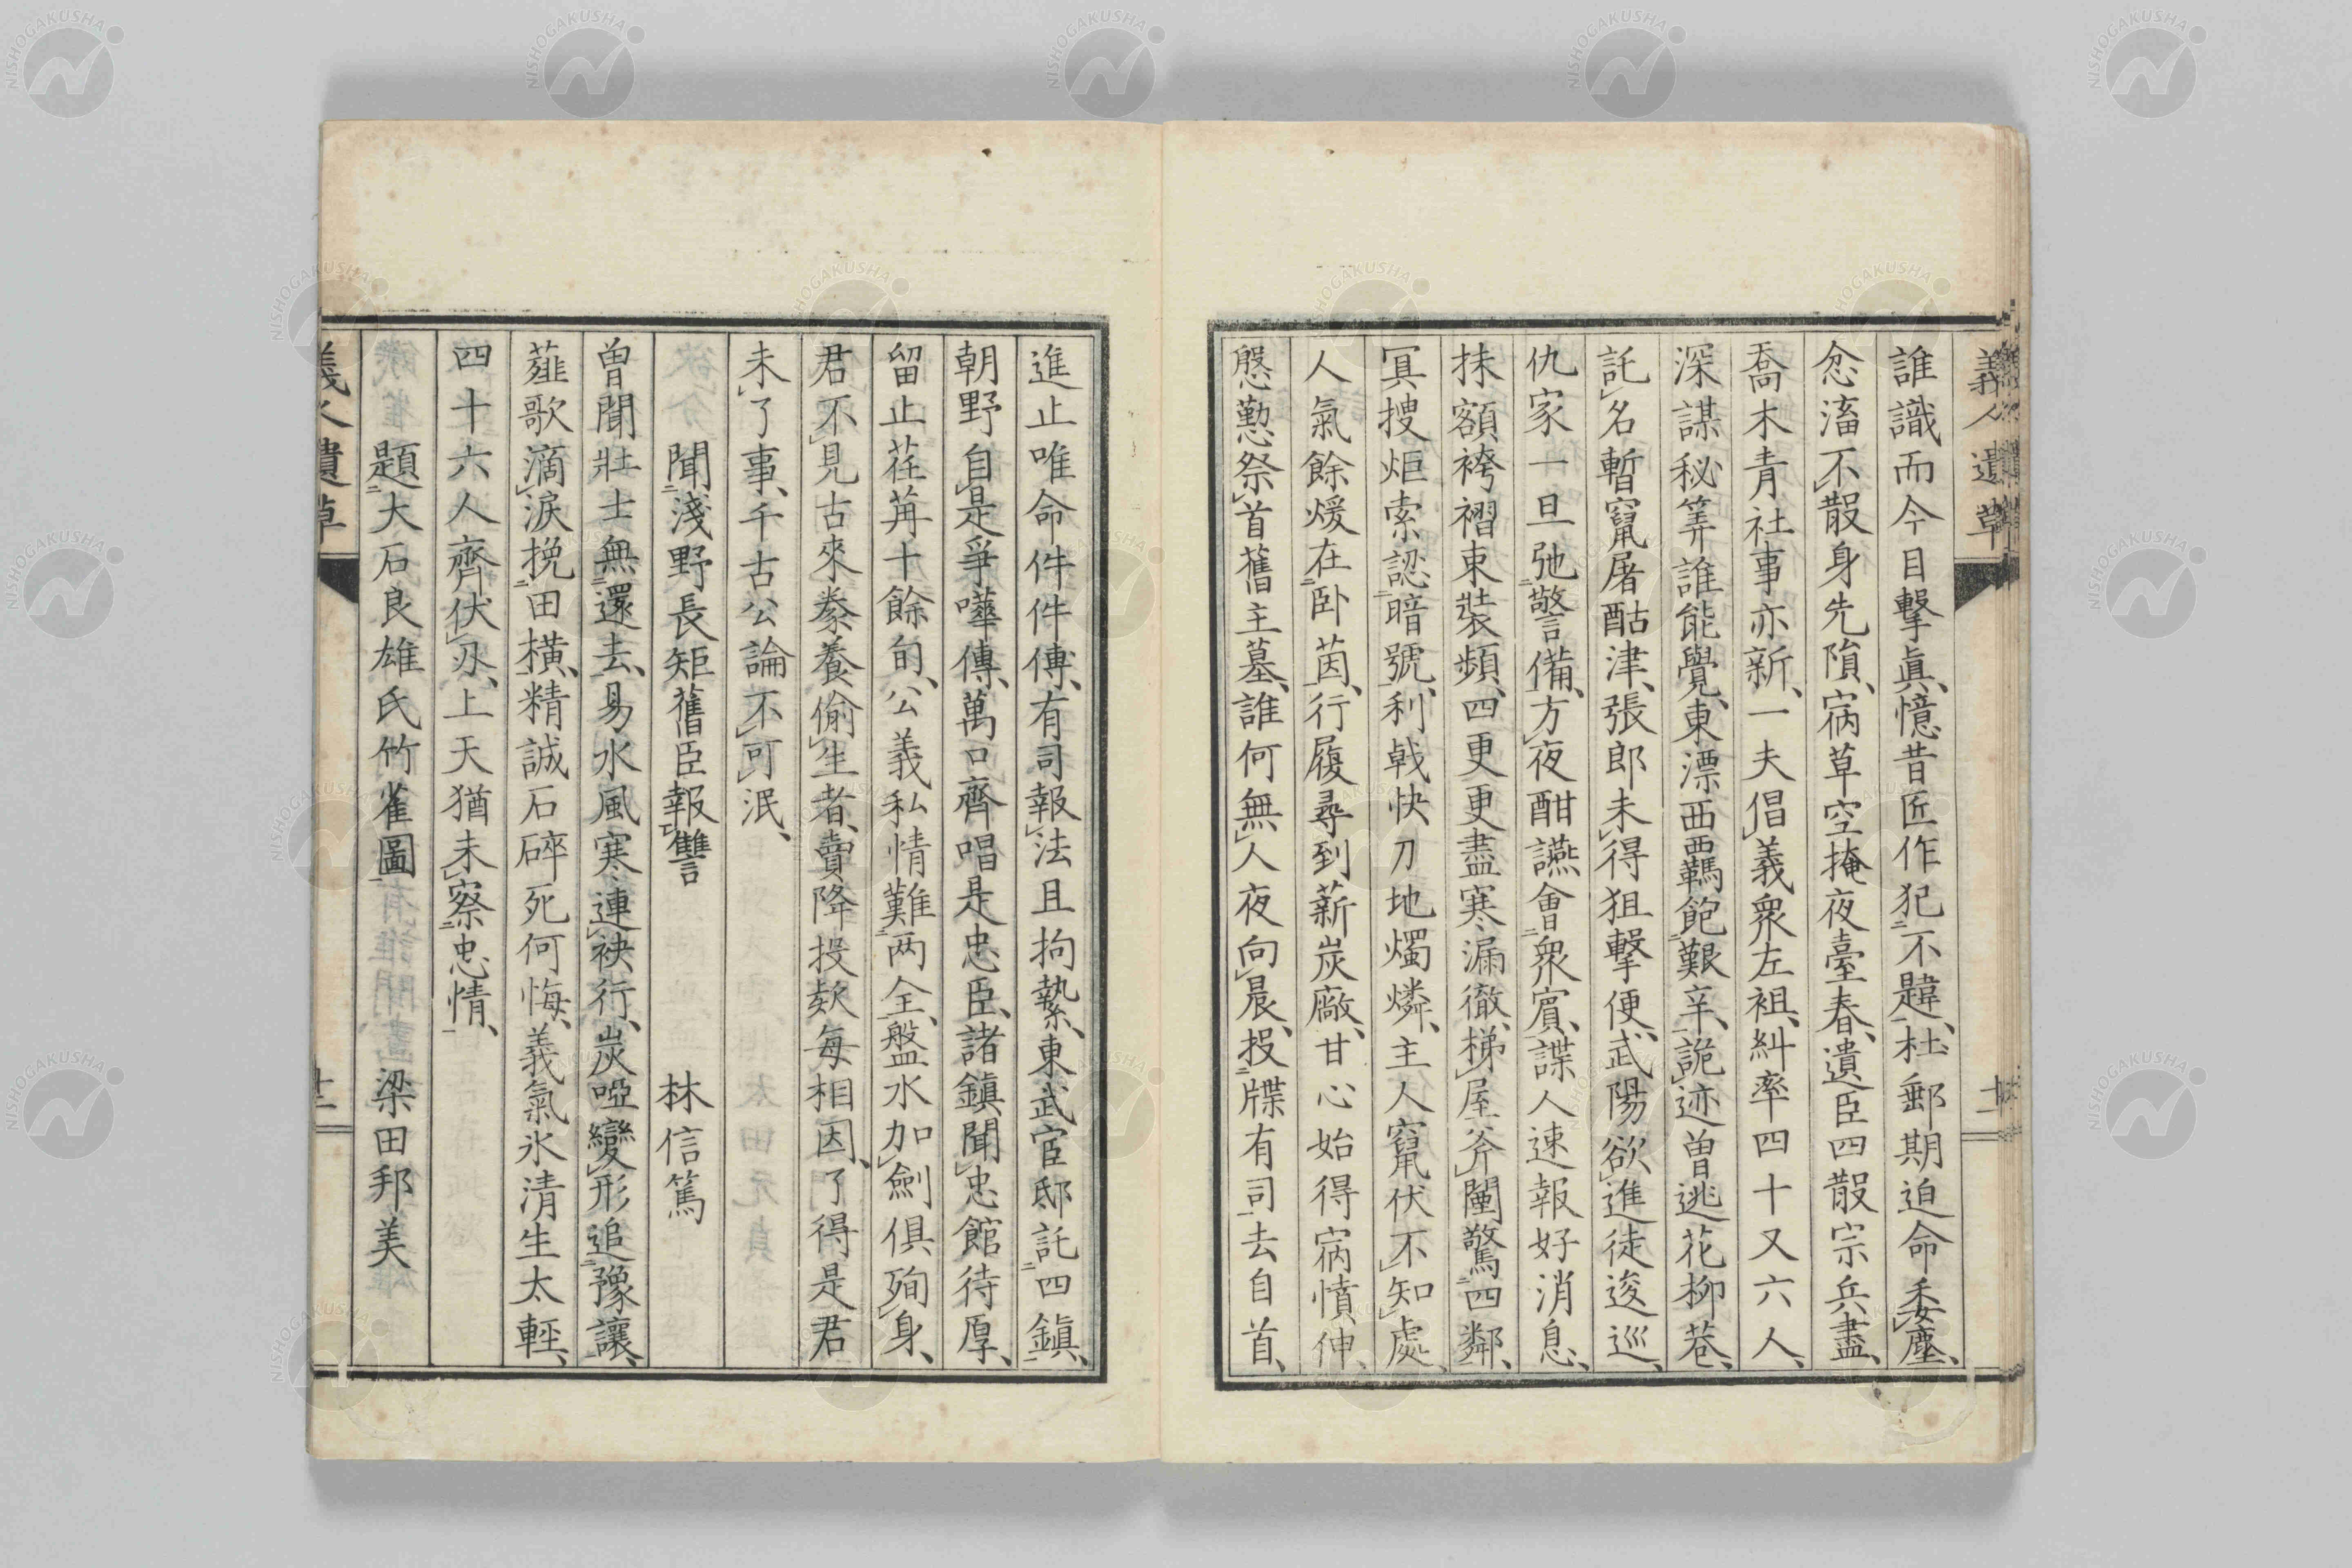 義人遺草
誰識而今目擊眞、憶昔匠作犯不韙、杜郵期迫命委塵、
忿滀不散身先隕、病草空掩夜臺春、遺臣四散宗兵盡、
喬木靑社事亦新、一夫倡義衆左袒、糾率四十又六人、
深謀秘筭誰能覺、東漂西羈飽艱辛、詭迹曽逃花柳巷、
託名暫竄屠酤津、張郎未得狙擊便、武陽欲進徒逡巡、
仇家一旦弛警備、方夜酣讌會衆賓、諜人速報好消息、
抹額袴褶東裝頻、四更更盡寒漏徹、梯屋斧闥驚四鄰、
冥搜炬索認暗號、利戟快刀地燭燐、主人竄伏不知處、
人氣餘煖在卧茵、行履尋到薪炭廠、甘心始得病憤伸、
慇懃祭首舊主墓、誰何無人夜向晨、投牒有司去自首、
進止唯命件件傳、有司報法且拘縶、東武宦邸託四鎭、
朝野自是爭嘩傳、萬口齊唱是忠臣、諸鎭聞忠館待厚、
留止荏苒十餘旬、公義私情難兩全、盤水加劍俱殉身、
君不見古來豢養偷生者、賣降投欵每相因、了得是君
未了事、千古公論不可泯、
聞淺野長矩舊臣報讐 林信篤
曽聞壯士無還去、易水風寒連袂行、炭啞變形追豫讓、
薤歌滴淚挽田橫、精誠石碎死何悔、義氣氷清生太輕、
四十六人齊伏刃、上天猶未察忠情、
題大石良雄氏竹雀圖 梁田邦美
義人遺草